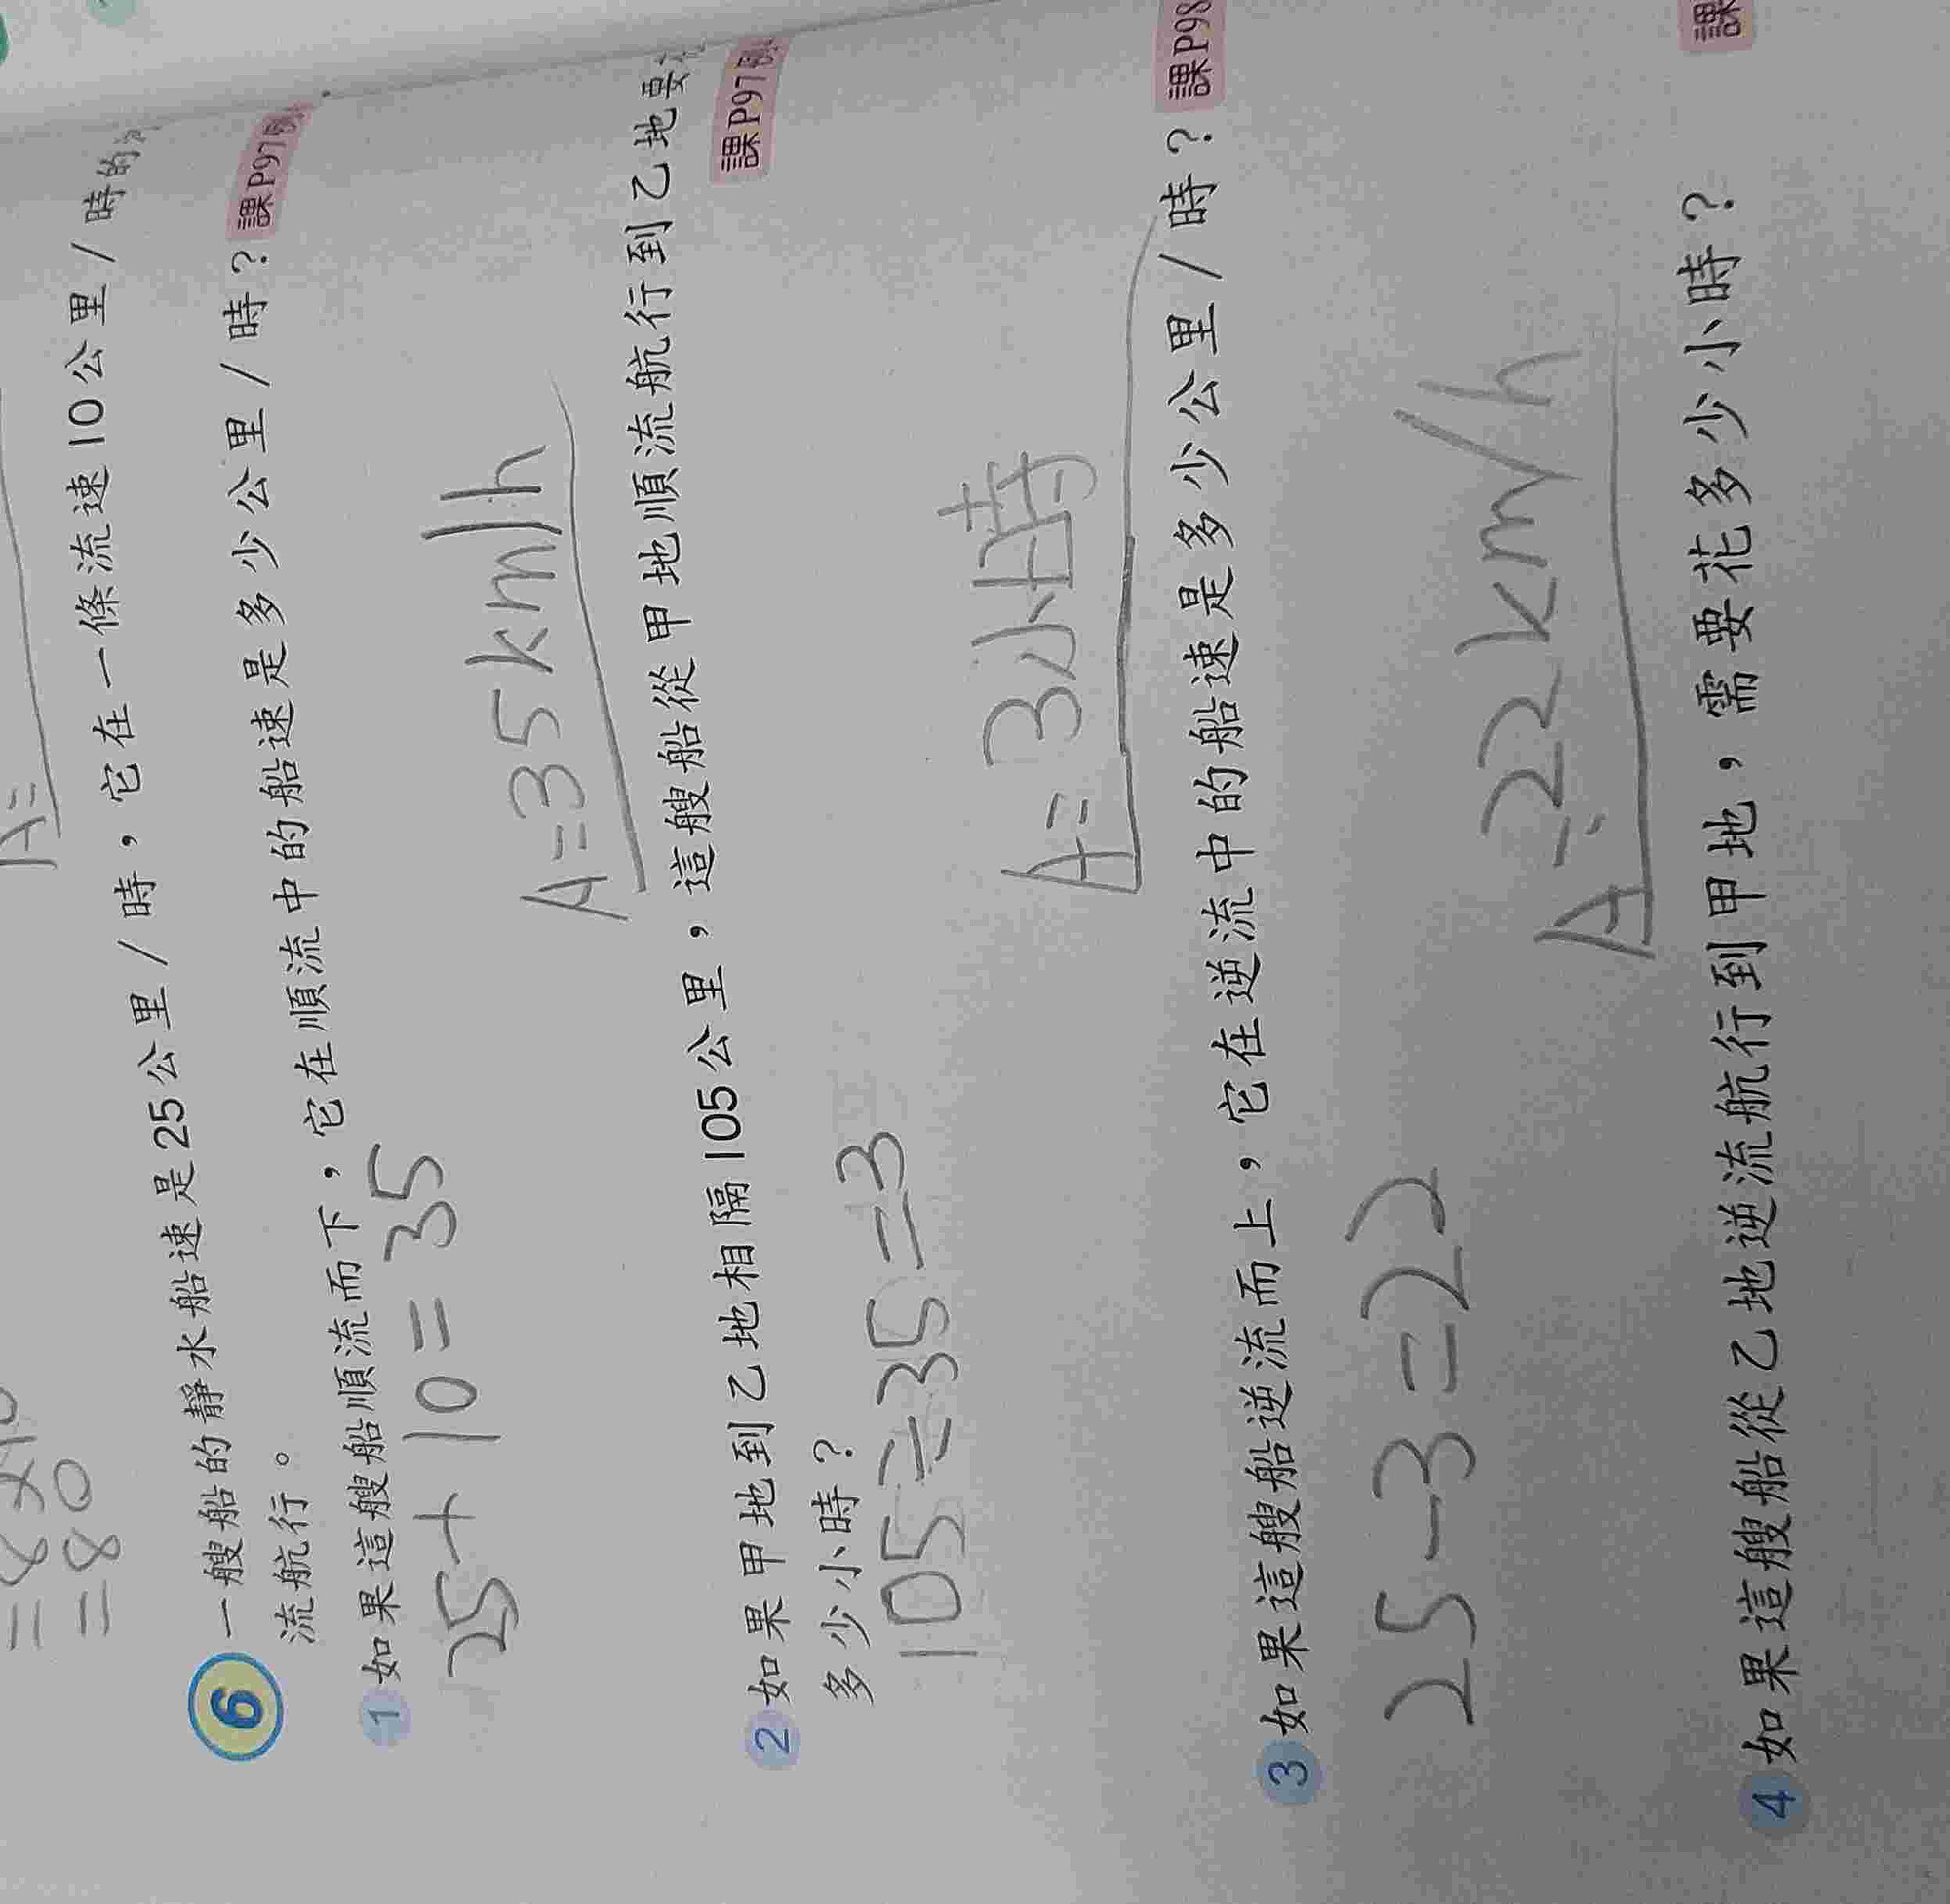 A=
=80
6 一艘船的靜水船速是25公里/時，它在一條流速10公里/時的
流航行。
1 如果這艘船順流而下，它在順流中的船速是多少公里/時？課P97例
25+10=35
A=35km/h
2 如果甲地到乙地相隔105公里，這艘船從甲地順流航行到乙地要
多少小時？ 課P97例
105÷35=3
A=3小時
3 如果這艘船逆流而上，它在逆流中的船速是多少公里/時？課P98
25-3=22
A=22km/h
4 如果這艘船從乙地逆流航行到甲地，需要花多少小時？ 課